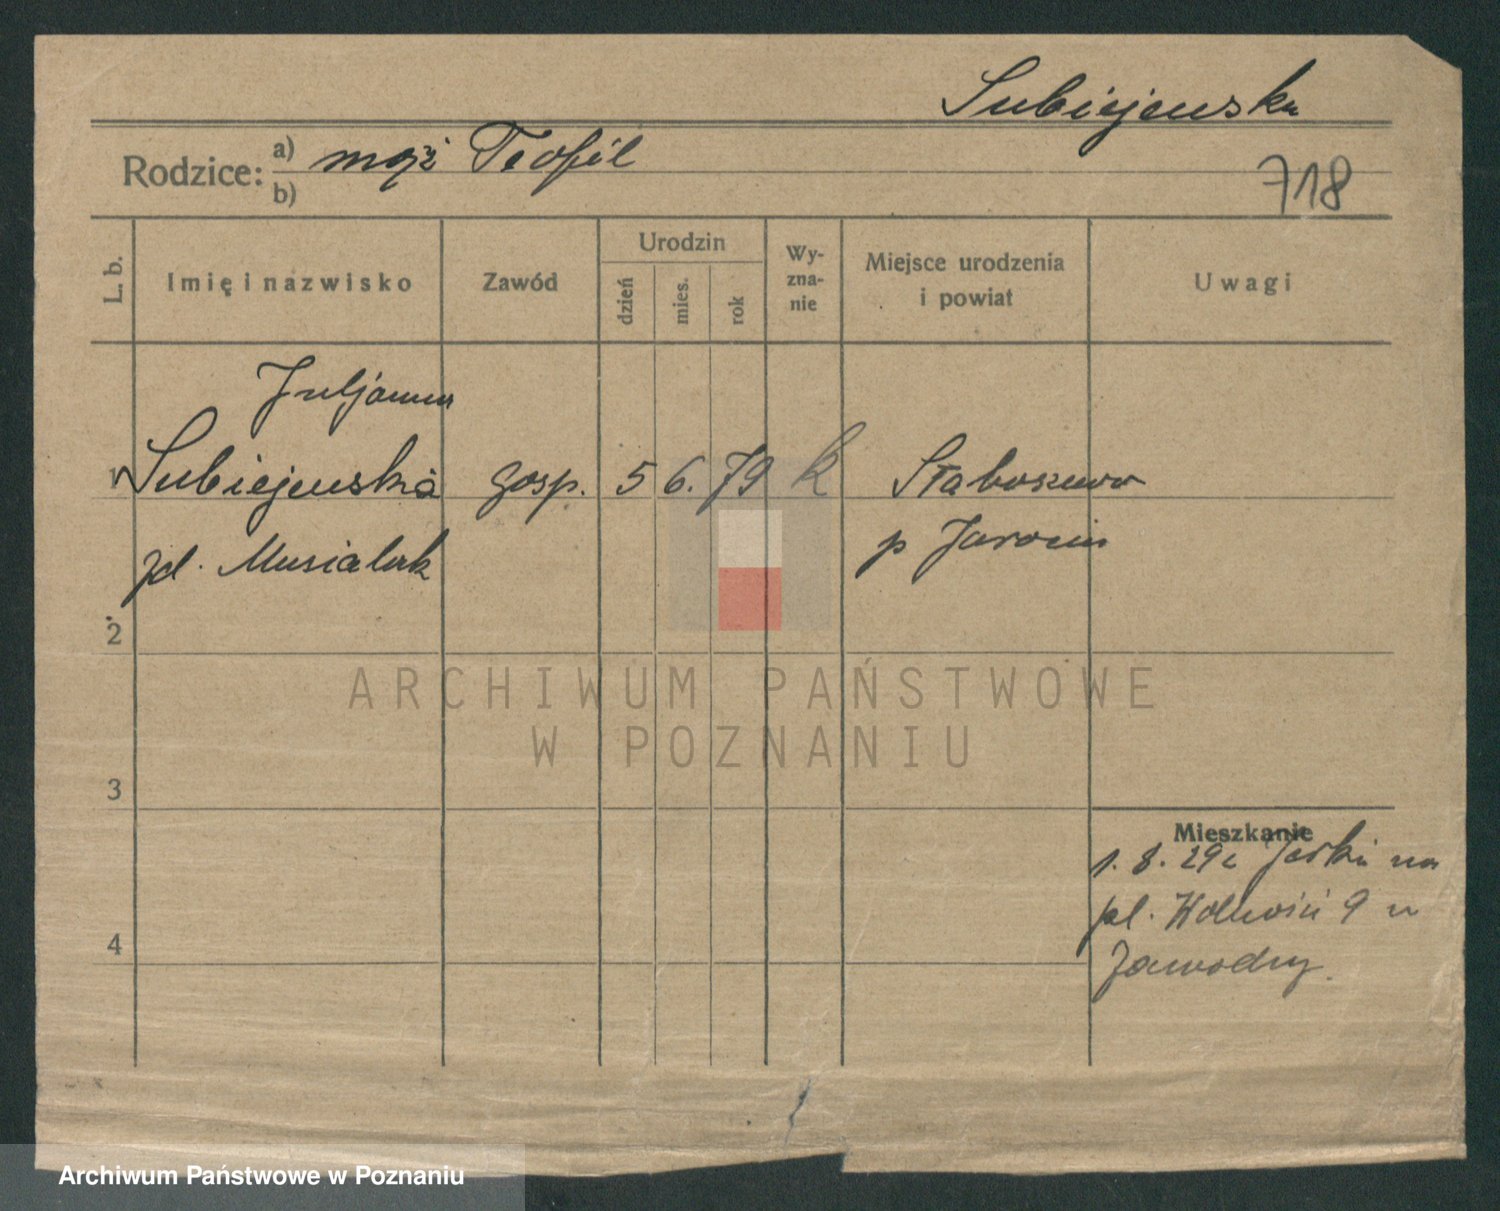 Subiejewska
Rodzice: a) mąż Teofil
b)
718
L. b. Imię i nazwisko Zawód Urodzin dzień mies. rok Wy-zna-nie Miejsce urodzenia i powiat Uwagi
Juljanna
1 Subiejewska gosp. 5 6. 79 k Słaboszewo
zd. Musialak p Jarocin
2
3
4
Mieszkanie
1. 8. 29 na
pl. Wolności 9 u
Zawodny.
ARCHIWUM PAŃSTWOWE
W POZNANIU
Archiwum Państwowe w Poznaniu